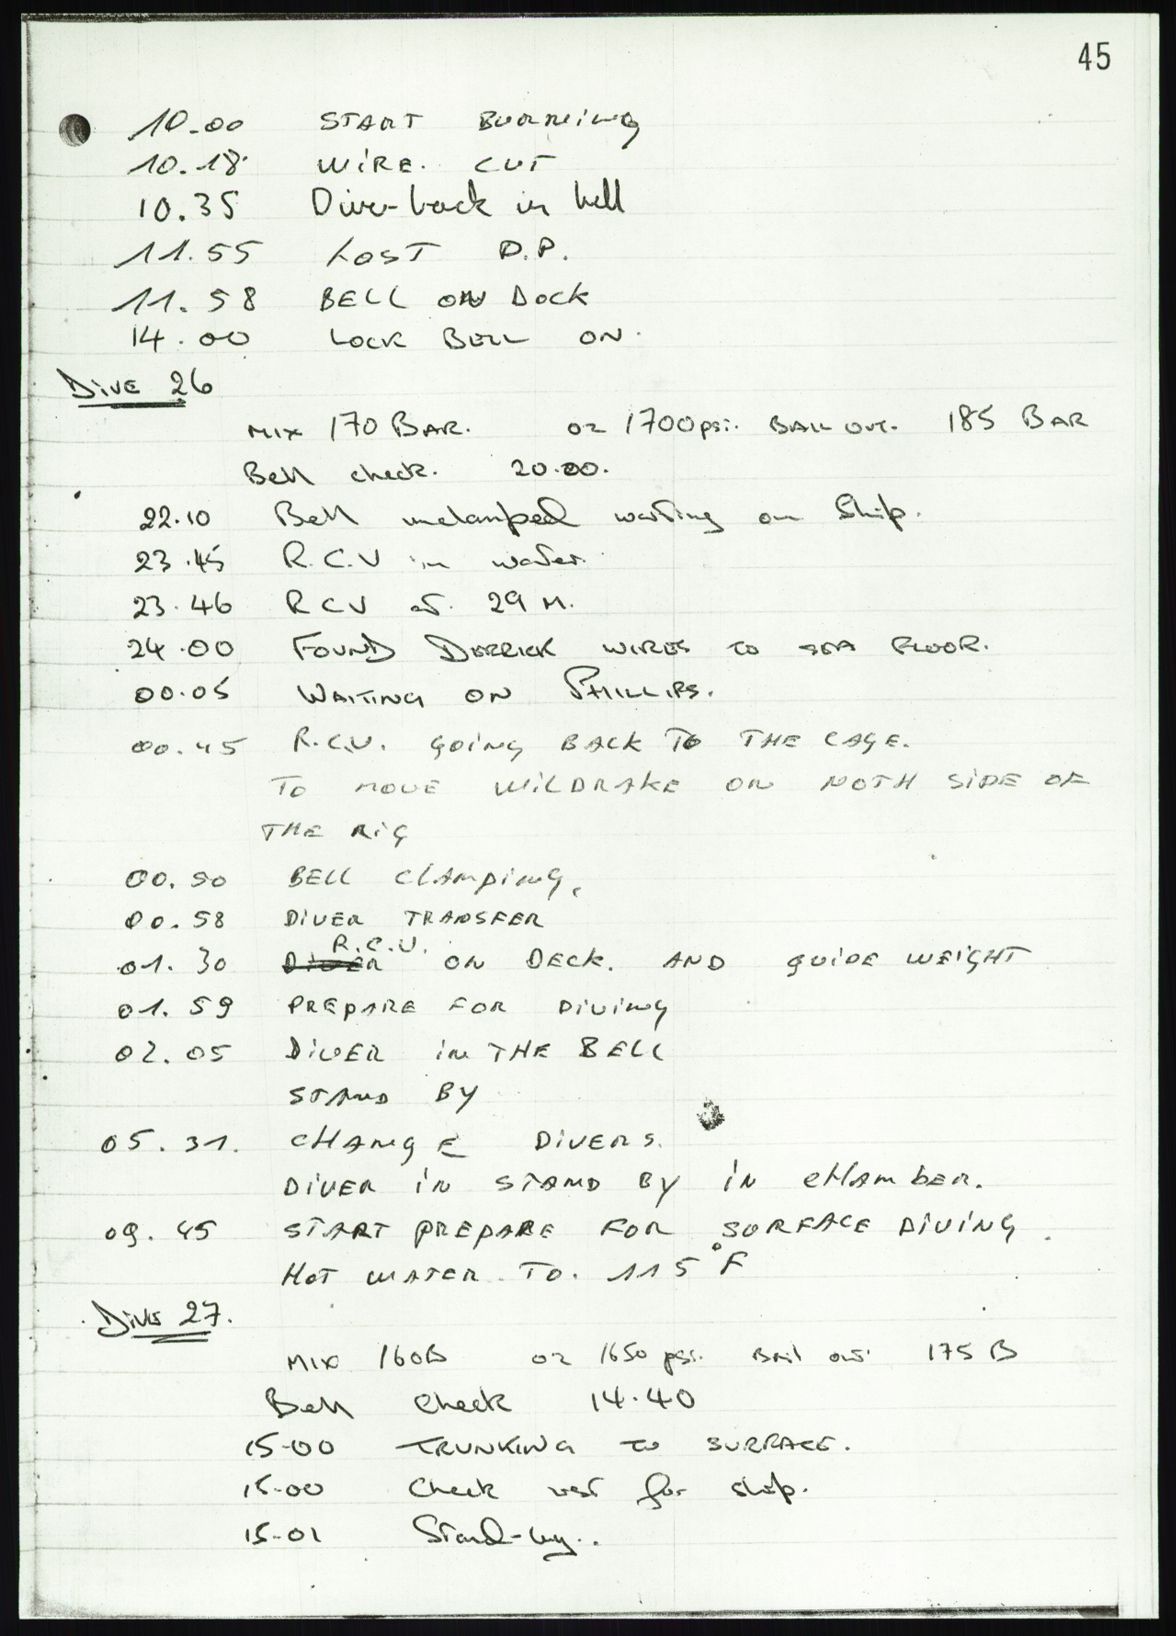 45
10.00 START BURNING
10.18 WIRE. CUT
10.35 Diver back in bell
11.55 LOST D.P.
11.58 BELL ON DOCK
14.00 LOCK BELL ON.
DIVE 26
MIX 170 BAR. O2 1700 psi. BAIL OUT. 185 BAR
Bell check. 20.00.
22.10 Bell unclamped waiting on Ship.
23.45 R.C.V in water.
23.46 RCV at. 29 M.
24.00 FOUND DERRICK WIRES TO SEA FLOOR.
00.05 WAITING ON PHILLIPS.
00.45 R.C.V. GOING BACK TO THE CAGE.
TO MOVE WILDRAKE ON NOTH SIDE OF
THE RIG
00.50 BELL CLAMPING,
00.58 DIVER TRANSFER
R.C.V.
01.30 DIVER ON DECK. AND GUIDE WEIGHT
01.59 PREPARE FOR DIVING
02.05 DIVER IN THE BELL
STAND BY
05.31. CHANGE DIVERS.
DIVER IN STAND BY IN CHAMBER.
09.45 START PREPARE FOR SURFACE DIVING.
HOT WATER TO. 115°F
Dive 27.
MIX 160B O2 1650 psi. Bail out 175 B
Bell Check 14.40
15-00 TRUNKING TO SURFACE.
15-00 Check for ship.
15-01 Stand-by.